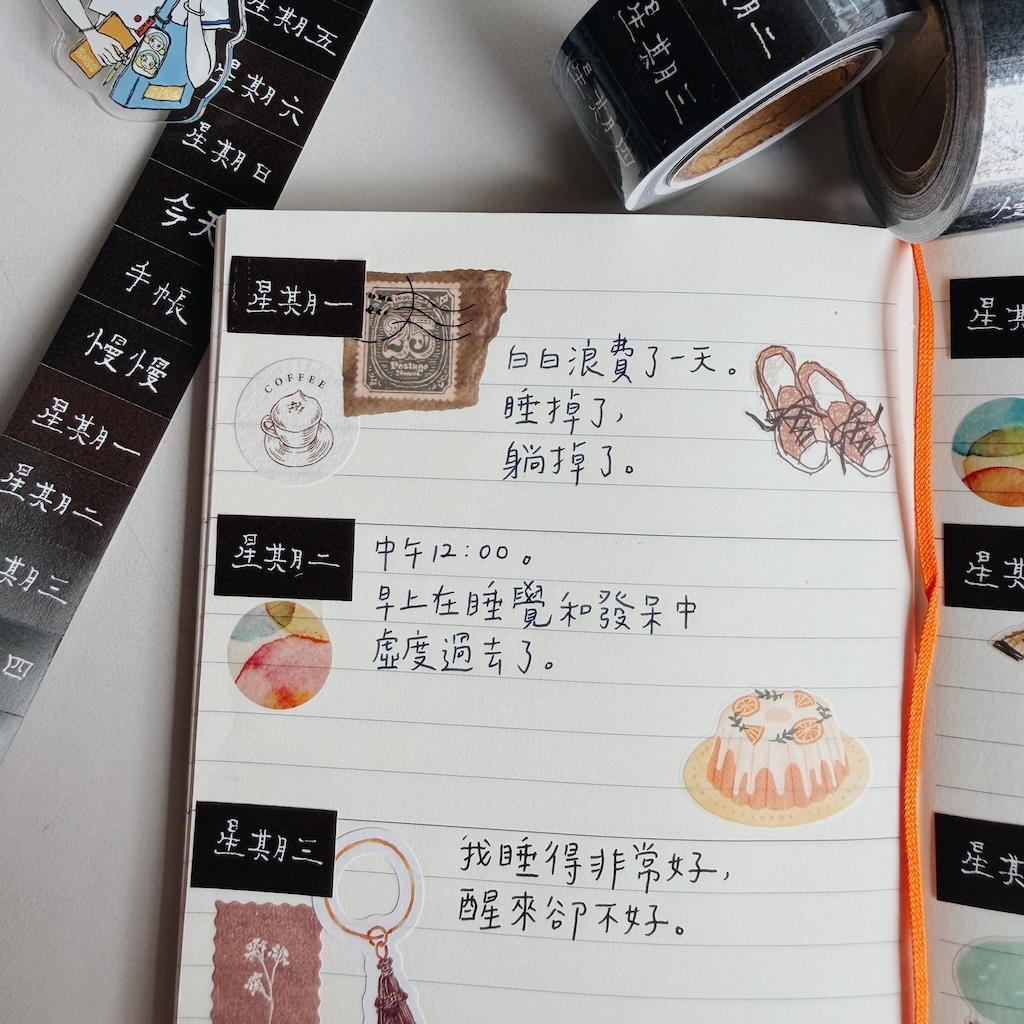 星期五
星期六
星期日
今天
手帳
慢慢
星期一
星期二
期三
四
星期二
星期三
星期四
慢
星期一
25
Postage
COFFEE
白白浪費了一天。
睡掉了,
躺掉了。
星期二
中午12:00。
早上在睡覺和發呆中
虛度過去了。
星期三
我睡得非常好,
醒來卻不好。
星期
星期
星期